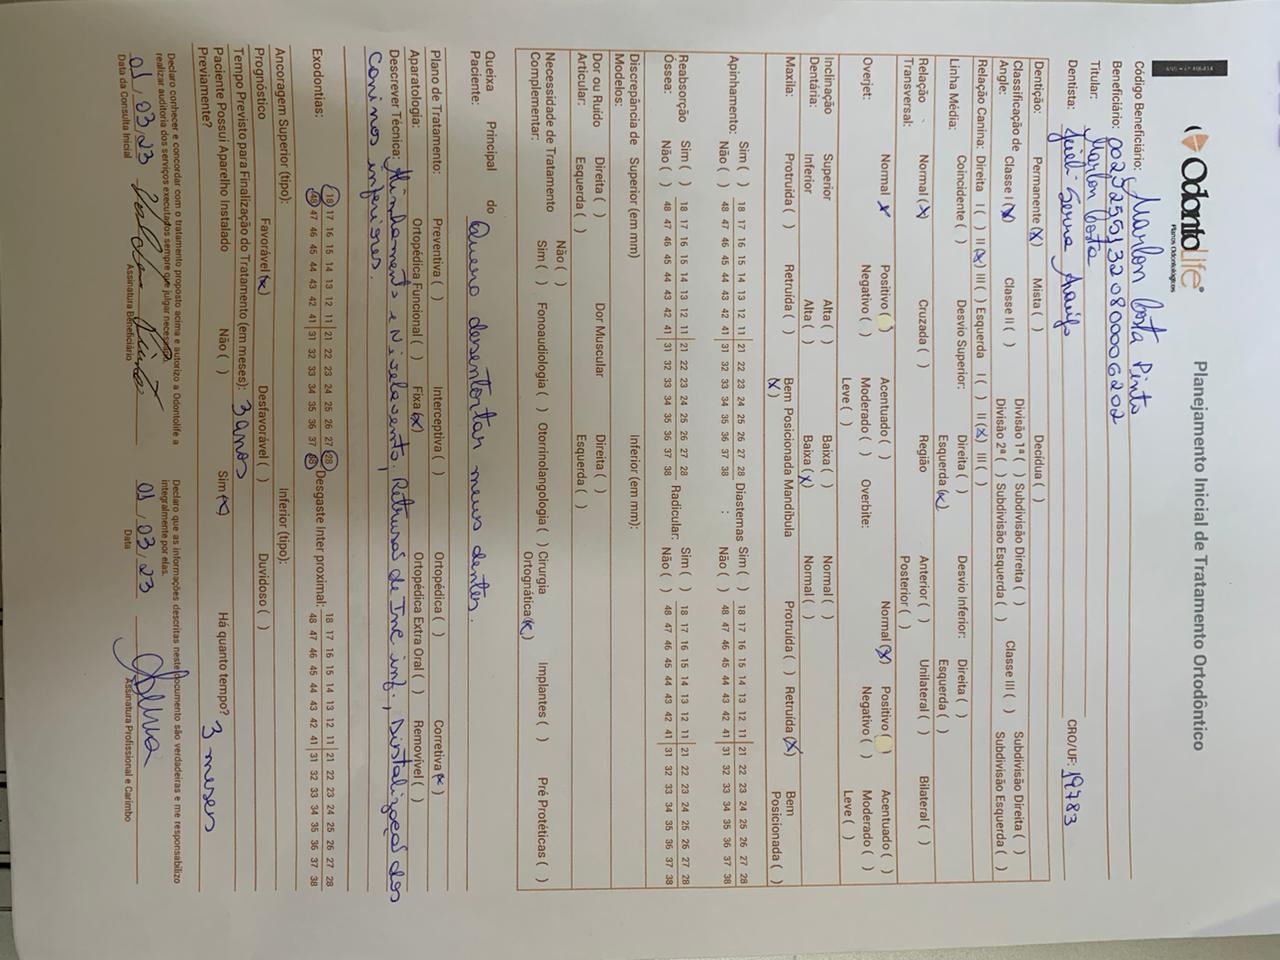 OdontoLife®
Planos Odontológicos
Planejamento Inicial de Tratamento Ortodôntico
Código Beneficiário: Marlon Costa Pinto
Beneficiário: 00252551320800006202
Titular: Marlon Costa
Dentista: Serra Araújo CRO/UF: 19783
Dentição: Permanente (X) Mista ( ) Decídua ( )
Classificação de Angle: Classe I (X) Classe II ( ) Divisão 1ª ( ) Subdivisão Direita ( ) Divisão 2ª ( ) Subdivisão Esquerda ( ) Classe III ( ) Subdivisão Direita ( ) Subdivisão Esquerda ( )
Relação Canina: Direita I ( ) II (X) III ( ) Esquerda I ( ) II (X) III ( )
Linha Média: Coincidente ( ) Desvio Superior: Direita ( ) Esquerda (X) Desvio Inferior: Direita ( ) Esquerda ( )
Relação Transversal: Normal (X) Cruzada ( ) Região Anterior ( ) Posterior ( ) Unilateral ( ) Bilateral ( )
Overjet: Normal X Positivo ( ) Negativo ( ) Acentuado ( ) Moderado ( ) Leve ( ) Overbite: Normal (X) Positivo ( ) Negativo ( ) Acentuado ( ) Moderado ( ) Leve ( )
Inclinação Dentária: Superior Alta ( ) Baixa ( ) Normal ( )
Inferior Alta ( ) Baixa (X) Normal ( )
Maxila: Protruída ( ) Retruída ( ) Bem Posicionada (X) Mandíbula Protruída ( ) Retruída (X) Bem Posicionada ( )
Apinhamento: Sim ( ) 18 17 16 15 14 13 12 11 | 21 22 23 24 25 26 27 28 Diastemas: Sim ( ) 18 17 16 15 14 13 12 11 | 21 22 23 24 25 26 27 28
Não ( ) 48 47 46 45 44 43 42 41 | 31 32 33 34 35 36 37 38 Não ( ) 48 47 46 45 44 43 42 41 | 31 32 33 34 35 36 37 38
Reabsorção Óssea: Sim ( ) 18 17 16 15 14 13 12 11 | 21 22 23 24 25 26 27 28 Radicular: Sim ( ) 18 17 16 15 14 13 12 11 | 21 22 23 24 25 26 27 28
Não ( ) 48 47 46 45 44 43 42 41 | 31 32 33 34 35 36 37 38 Não ( ) 48 47 46 45 44 43 42 41 | 31 32 33 34 35 36 37 38
Discrepância de Modelos: Superior (em mm) Inferior (em mm):
Dor ou Ruído Articular: Direita ( ) Esquerda ( ) Dor Muscular Direita ( ) Esquerda ( )
Necessidade de Tratamento Complementar: Não ( ) Sim ( ) Fonoaudiologia ( ) Otorrinolangologia ( ) Cirurgia Ortognática (X) Implantes ( ) Pré Protéticas ( )
Queixa Principal do Paciente: Quero desentortar meus dentes.
Plano de Tratamento: Preventiva ( ) Interceptiva ( ) Ortopédica ( ) Corretiva (X)
Aparatologia: Ortopédica Funcional ( ) Fixa (X) Ortopédica Extra Oral ( ) Removível ( )
Descrever Técnica: Alinhamento e Nivelamento, Retrusão de Inc inf., Distalização dos
Caninos inferiores.
Exodontias: 18 17 16 15 14 13 12 11 | 21 22 23 24 25 26 27 28 Desgaste Inter proximal: 18 17 16 15 14 13 12 11 | 21 22 23 24 25 26 27 28
48 47 46 45 44 43 42 41 | 31 32 33 34 35 36 37 38 48 47 46 45 44 43 42 41 | 31 32 33 34 35 36 37 38
Ancoragem Superior (tipo): Inferior (tipo):
Prognóstico Favorável (X) Desfavorável ( ) Duvidoso ( )
Tempo Previsto para Finalização do Tratamento (em meses): 3 anos
Paciente Possui Aparelho Instalado Previamente? Não ( ) Sim (X) Há quanto tempo? 3 meses
Declaro conhecer e concordar com o tratamento proposto acima e autorizo a Odontolife a
realizar auditoria dos serviços executados sempre que julgar necessário.
01/03/23
Data da Consulta Inicial Assinatura Beneficiário
Declaro que as informações descritas neste documento são verdadeiras e me responsabilizo
integralmente por elas.
01/03/23
Data Assinatura Profissional e Carimbo